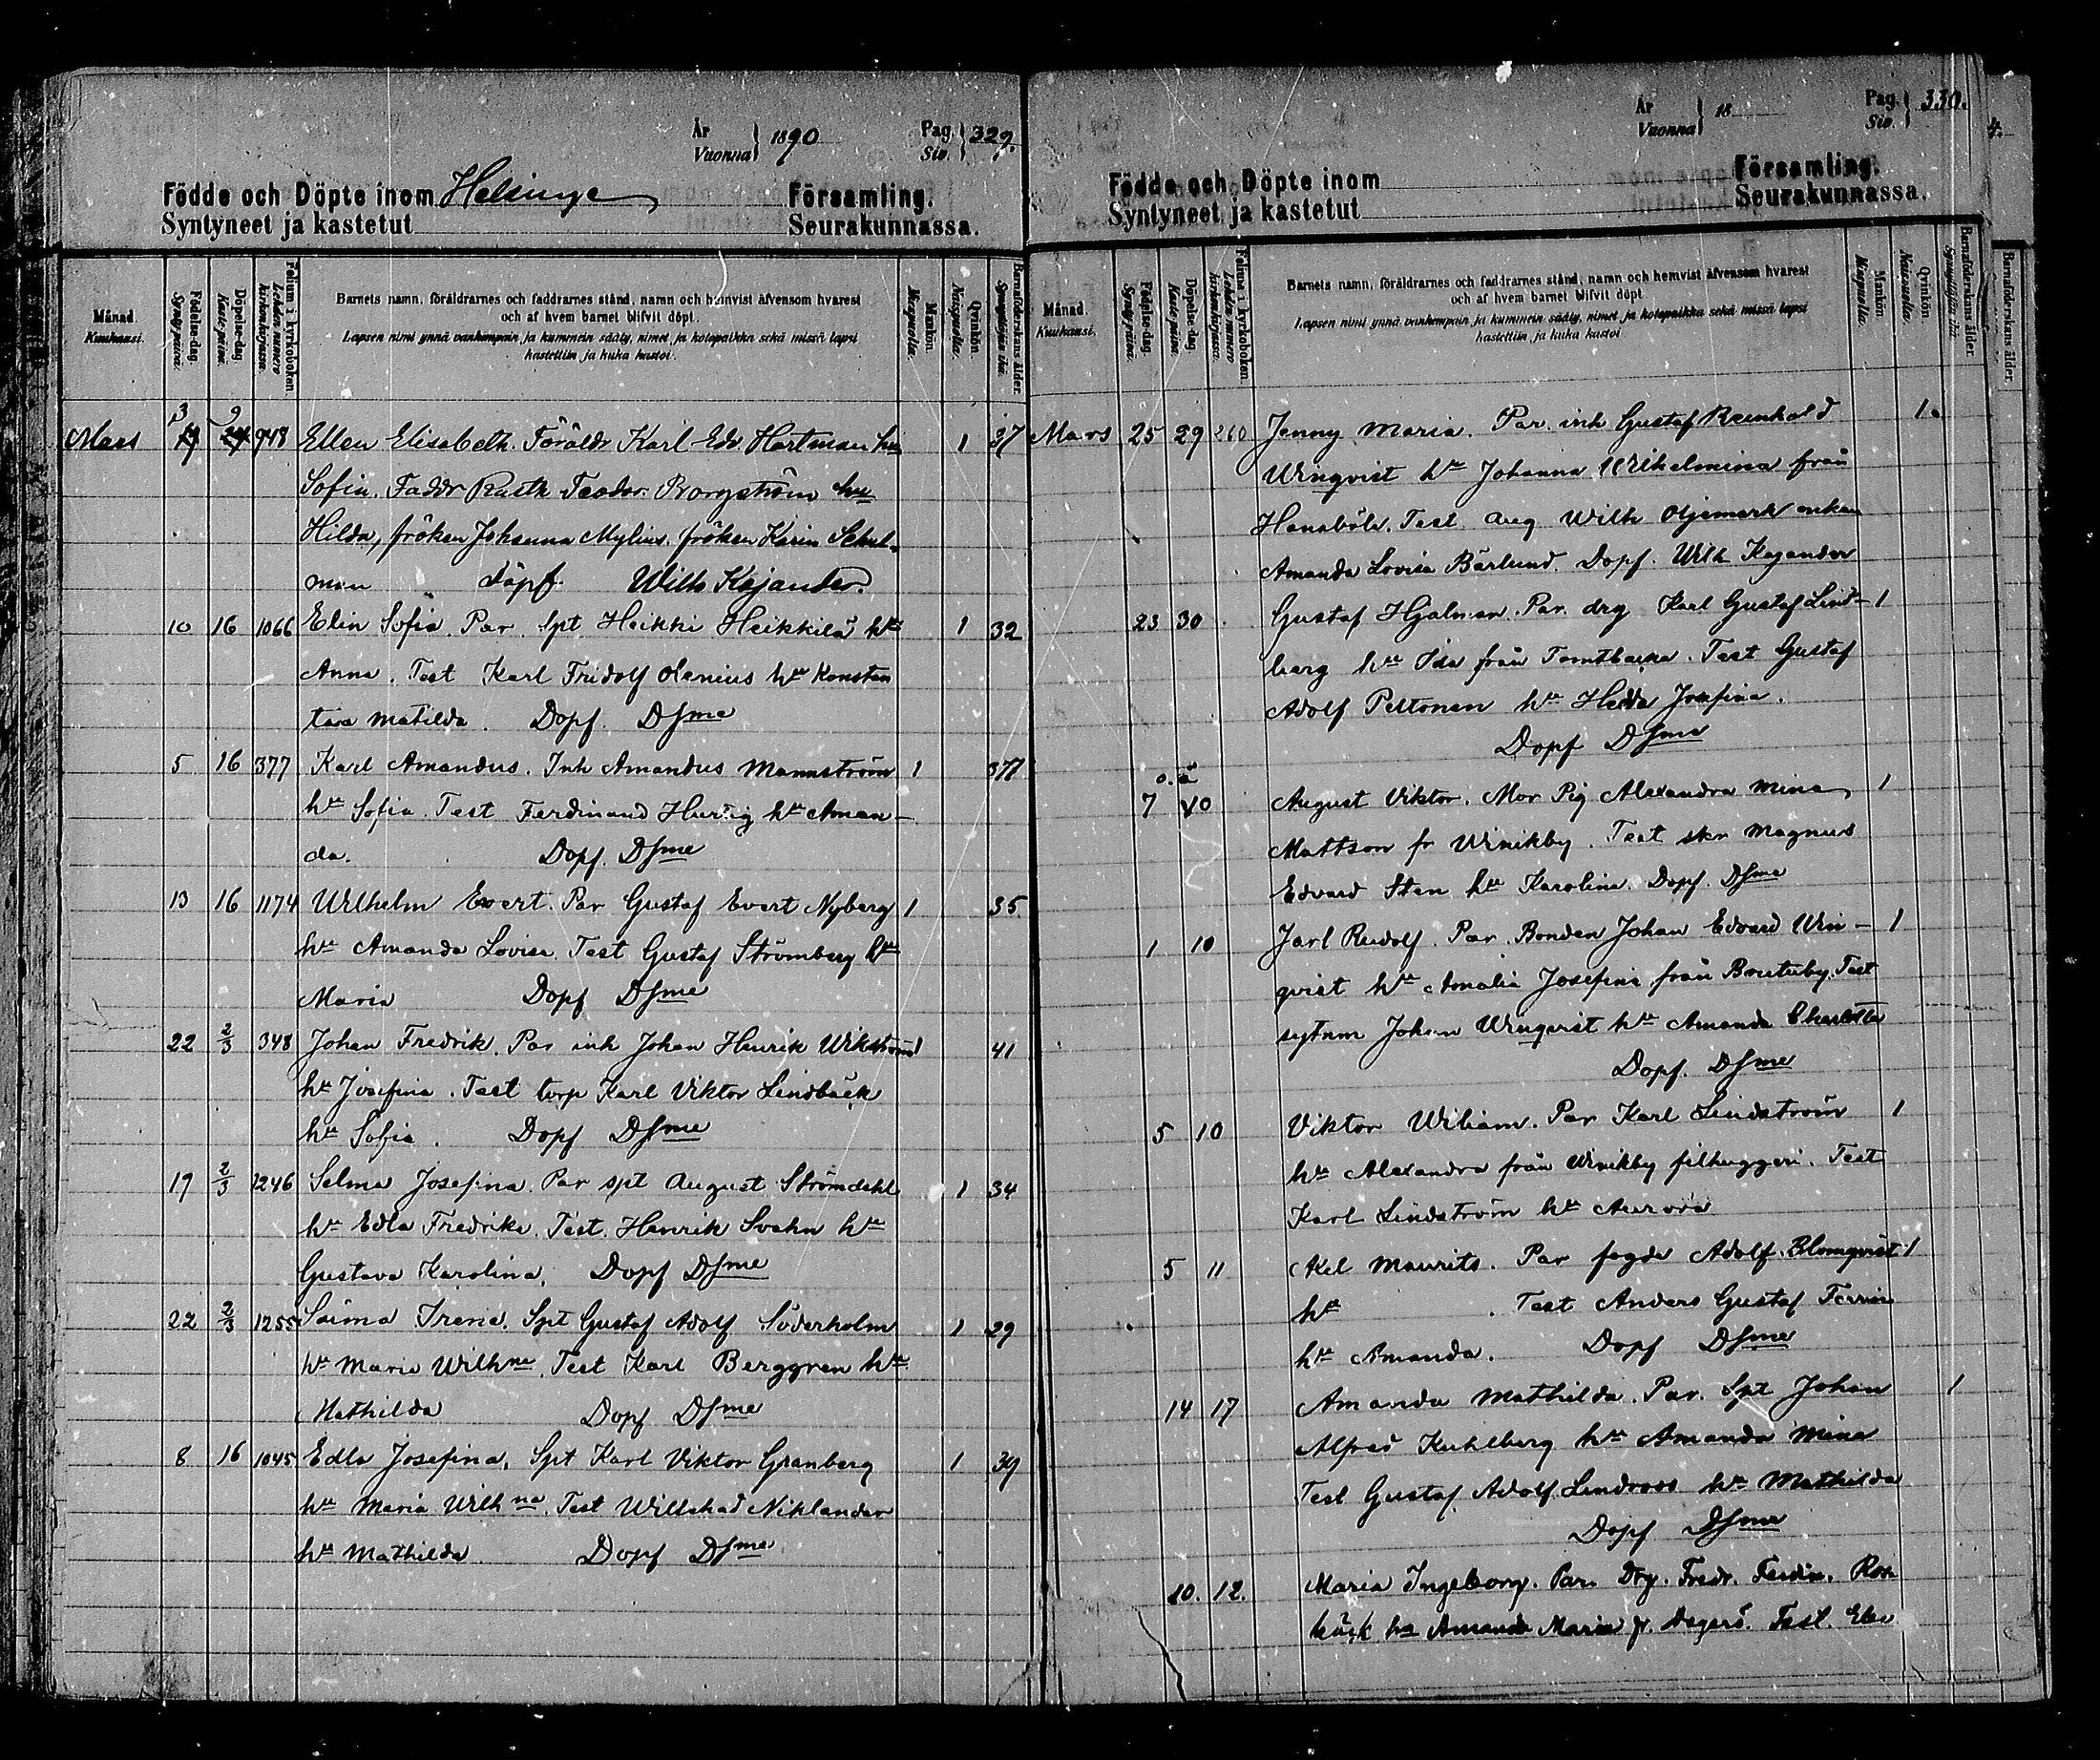 År
Vuonna } 1890 Pag. Siv. } 329.
Födde och Döpte inom Helsinge Församling.
Syntyneet ja kastetut Seurakunnassa.
Månad. Kuukausi.
Födelse-dag. Syntypäivä.
Döpelse-dag. Kaste-päivä.
Folium i kyrkoboken. Lehden numero kirkonkirjassa.
Barnets namn, föräldrarnes och faddrarnes stånd, namn och hemvist äfvensom hvarest
och af hvem barnet blifvit döpt.
Lapsen nimi ynnä vanhempain ja kummein sääty, nimet ja kotopaikka sekä missä lapsi
kastettiin ja kuka kastoi.
Mankön. Miespuolia.
Qvinkön. Naispuolia.
Barnaföderskans ålder. Synnyttäjän ikä.
3 9
Mars 19 24 948 Ellen Elisabeth. Föräldr Karl Edv. Hartman hu 1 37
Sofia. Faddr Teodor Borgström hu
Hilda, fröken Johanna Mylius. fröken Karin Schul-
man döpf. Wilh Kajander.
10 16 1066 Elin Sofia. Par. Spt Heikki Heikkilä hu 1 32
Anna. Test Karl Fridolf Olenius hu Konstan
tava Matilda. Dopf. DSme
5 16 377 Karl Amandus. Inh Amandus Mannström 1 37
hu Sofia. Test Ferdinand Hertig hu Aman-
da. Dopf. DSme
13 16 1174 Wilhelm Evert. Par Gustaf Evert Nyberg 1 35
hu Amanda Lovisa. Test Gustaf Strömberg hu
Maria Dopf DSme
22 2/3 348 Johan Fredrik. Par inh Johan Henrik Wikström 1 41
hu Josefina. Test torp Karl Viktor Lindbäck
hu Sofia. Dopf DSme
19 2/3 1246 Selma Josefina. Par spt August Strömdahl 1 34
hu Edla Fredrika. Test. Henrik Svahn hu
Gustava Karolina. Dopf DSme
22 2/3 1255 Saima Irene. Spt Gustaf Adolf Söderholm 1 29
hu Maria Wilhna. Test Karl Berggren hu
Mathilda Dopf DSme
8 16 1045 Edla Josefina. Spt Karl Viktor Granberg 1 39
hu Maria Wilhna. Test Willehad Niklander
hu Mathilda Dopf DSme
År
Vuonna } 18 Pag. Siv. } 330.
Födde och Döpte inom Församling.
Syntyneet ja kastetut Seurakunnassa.
Månad. Kuukausi.
Födelse-dag. Syntypäivä.
Döpelse-dag. Kaste-päivä.
Folium i kyrkoboken. Lehden numero kirkonkirjassa.
Barnets namn, föräldrarnes och faddrarnes stånd, namn och hemvist äfvensom hvarest
och af hvem barnet blifvit döpt
Lapsen nimi ynnä vanhempain ja kummein sääty, nimet ja kotopaikka sekä missä lapsi
kastettiin ja kuka kastoi
Mankön. Miespuolia.
Qvinkön. Naispuolia.
Barnaföderskans ålder. Synnyttäjän ikä.
Barnaföderskans ålder.
Mars 25 29 260 Jenny Maria. Par inh Gustaf Reinhold 1
Winqvist hu Johanna Wilhelmina från
Hanaböle. Test Aug Wilh Öjemark enkan
Amanda Lovisa Bärlund. Dopf. Wilh Kajander
23 30 Gustaf Hjalmar. Par. drg Karl Gustaf Lind- 1
berg hu Ida från Tomtbacka. Test Gustaf
Adolf Peltonen hu Hedda Josefina.
Dopf DSme
7 10 August Viktor. Mor Pig Alexandra Mina 1
Mattson fr Winikby. Test skr Magnus
Edvard Sten hu Karolina. Dopf. DSme
1 10 Jarl Rudolf. Par. Bonden Johan Edvard Win- 1
qvist hu Amalia Josefina från Test
sytnm Johan Winqvist hu Amanda Charlotta
Dopf. DSme
5 10 Viktor Wiliam. Par Karl Lindström 1
hu Alexandra från Winikby filhuggeri. Test
Karl Lindström hu Aurora
5 11 Axel Maurits. Par fogde Adolf Blomqvist 1
hu . Test Anders Gustaf
hu Amanda. Dopf DSme
14 17 Amanda Mathilda. Par. Spt Johan 1
Alfred Kuhlberg hu Amanda Mina
Test Gustaf Adolf Lindroos hu Mathilda
Dopf DSme
10. 12. Maria Ingeborg. Par. Drg. Fredr. Ferdin. Rön
bäck hu Amanda Maria fr. Degerö. Test.